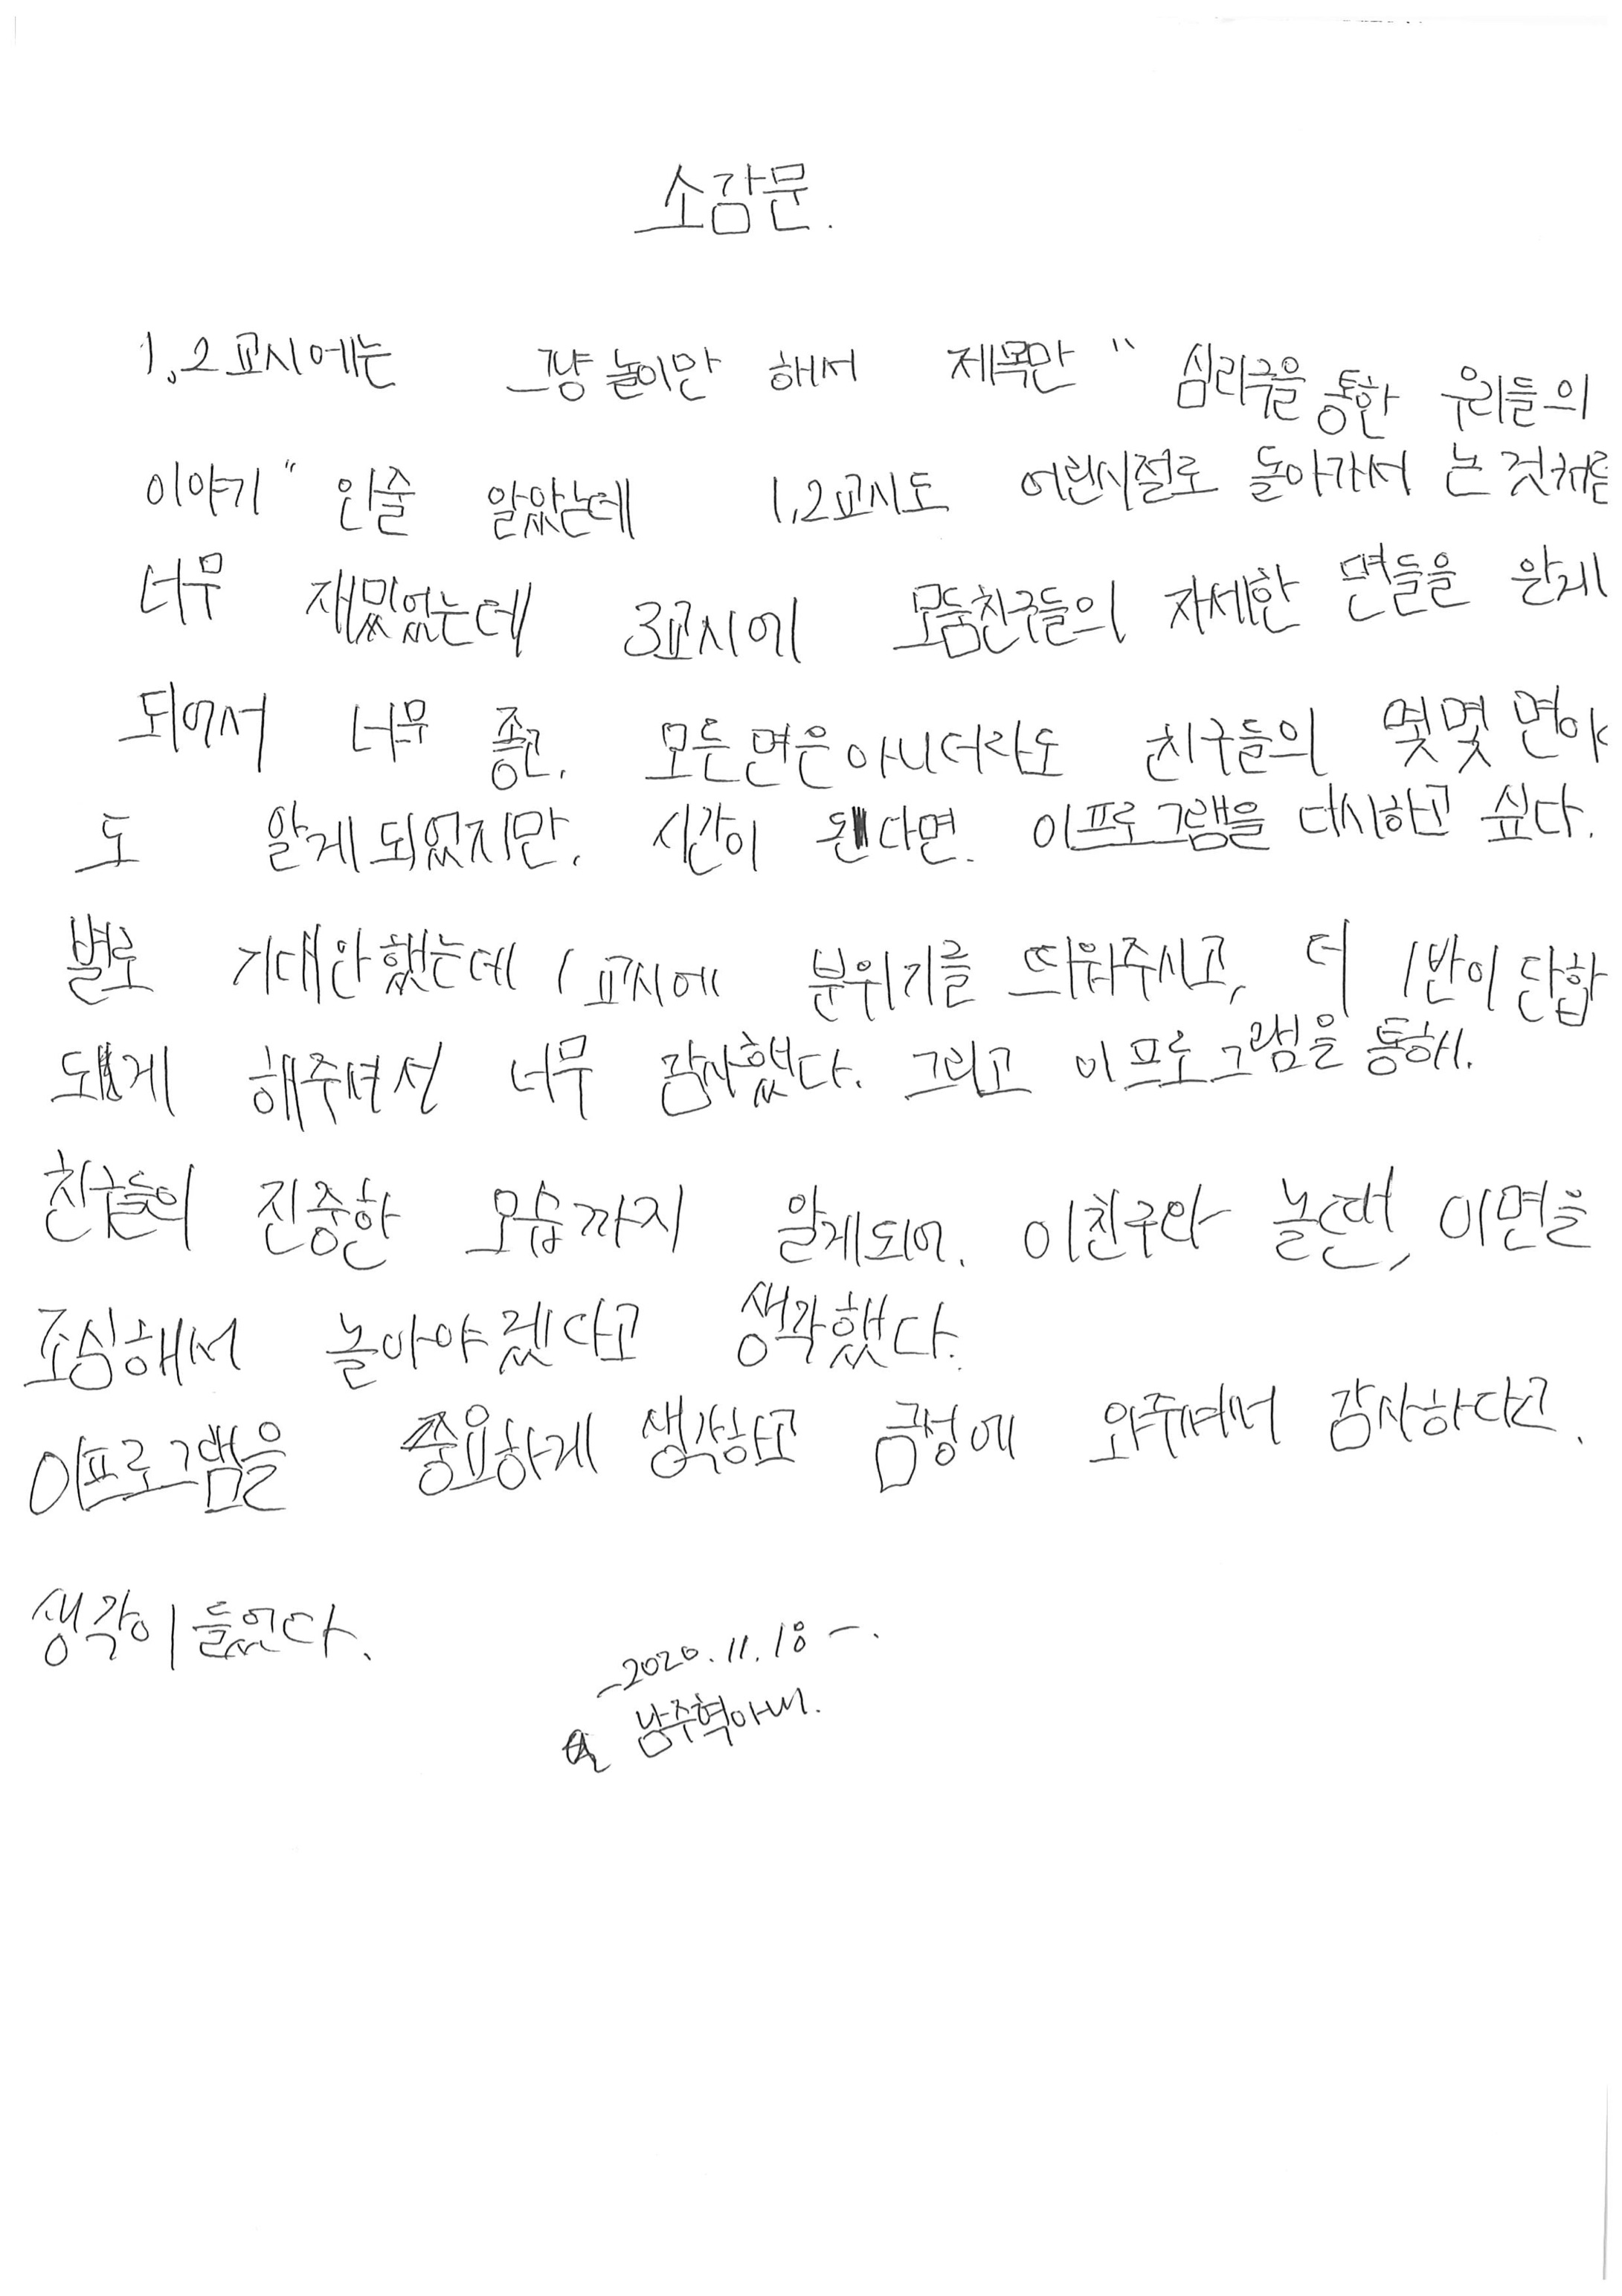 소감문.
1,2교시에는 그냥 놀이만 해서 제목만 " 심리극을 통한 우리들의
이야기" 인줄 알았는데 1,2교시도 어린시절로 돌아가서 논 것처럼
너무 재밌었는데 3교시에 모둠친구들의 자세한 면들을 알게
되어서 너무 좋고. 모든면은아니더라도 친구들의 몇몇 면이라
도 알게되었지만. 시간이 된다면. 이프로그램을 다시하고 싶다.
별로 기대안했는데 1교시에 분위기를 띄워주시고, 더 1반이 단합
되게 해주셔서 너무 감사했다. 그리고 이프로그램을 통해.
친구들의 진중한 모습까지 알게되어. 이친구와 놀땐, 이면을
조심해서 놀아야겠다고 생각했다.
이프로그램을 중요하게 생각하고 금성에 와주셔서 감사하다고.
생각이들었다.
-2020.11.18-.
남주혁